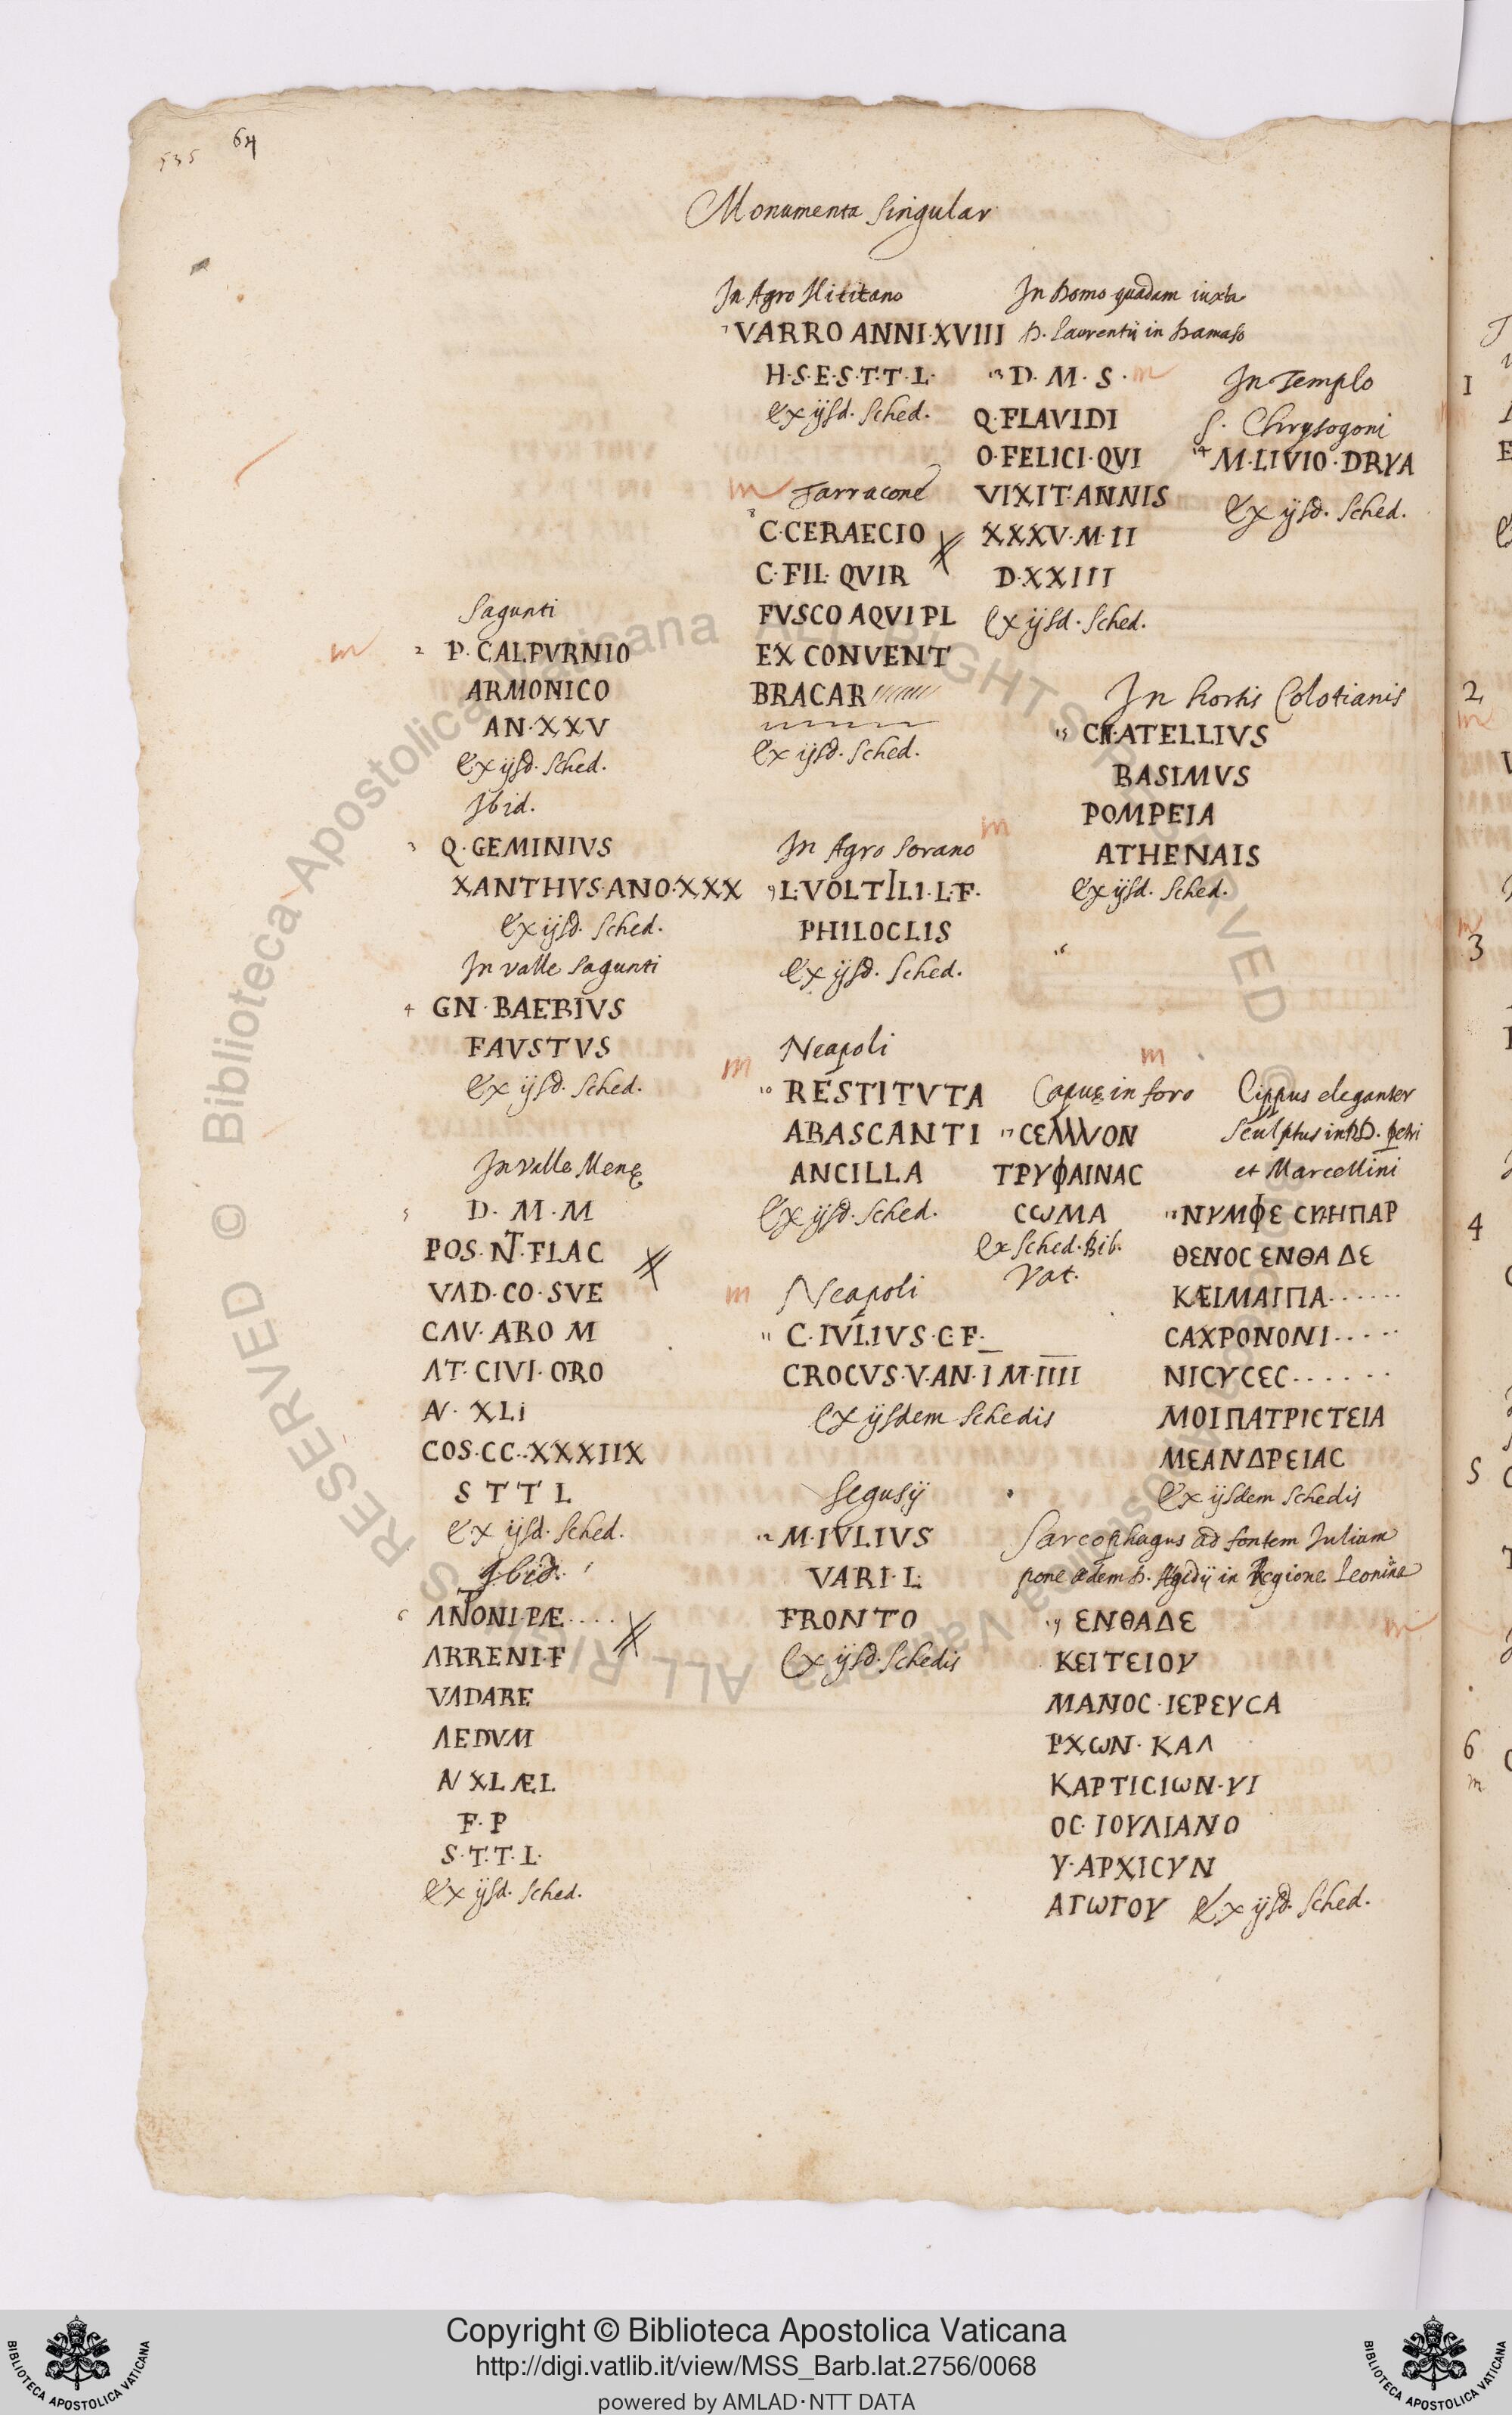 64
535
Monumenta Singular
Sagunti
2 P. CALPVRNIO
ARMONICO
AN·XXV
Ex ijsd. Sched.
Ibid.
3 Q·GEMINIVS
XANTHVS·ANO·XXX
Ex ijsd. Sched.
In valle Sagunti
4 GN·BAEBIVS
FAVSTVS
Ex ijsd. Sched.
In valle Menę
5 D·M·M
POS·NT·FLAC
VAD·CO·SVE
CAV·ARO M
AT·CIVI·ORO
N·XLi
COS·CC··XXXIIX
S T T L
Ex ijsd. Sched.
Ibid.
6 ANTONI·PÆ....
ARRENI·F
VADARE
AEDVM
N XLÆL
F·P
S·T·T·L·
Ex ijsd. Sched.
In Agro
7 VARRO ANNI·XVIII
H·S·E·S·T·T·L·
Ex ijsd. Sched.
m Tarracone
8 C·CERAECIO
C·FIL·QVIR
FVSCO AQVI PL
EX CONVENT
BRACAR
Ex ijsd. Sched.
In Agro Sorano
9 L·VOLTILI·L·F·
PHILOCLIS
Ex ijsd. Sched.
m Neapoli
10 RÉSTITVTA
ABASCANTI
ANCILLA
Ex ijsd. Sched.
m Neapoli
11 C·IVLIVS·C·F·
CROCVS·V·AN·I M·IIII
Ex ijsdem Schedis
Segusij
12 M·IVLIVS
VARI·L·
FRONTO
Ex ijsd. Schedis
In Domo quadam iuxta
D. Laurentij in Damaso
13 D·M·S· m
Q·FLAVIDI
O·FELICI·QVI
VIXIT·ANNIS
XXXV·M·II
D·XXIII
Ex ijsd. Sched.
In Templo
S. Chrysogoni
14 M·LIVIO·DRYA
Ex ijsd. Sched.
In hortis Colotianis
15 CN·ATELLIVS
BASIMVS
POMPEIA
ATHENAIS
Ex ijsd. Sched.
16
m
Capuę in foro
17 CЄMNON
ΤΡΥΦΑΙΝΑC
CωMA
Ex Sched. Bib.
Vat.
Cippus eleganter
sculptus in DD. Petri
et Marcellini
18 ΝΥΜΦЄ CΚΗΠΑΡ
ΘЄΝΟC ЄΝΘΑΔЄ
ΚÆΙΜΑΙΠΑ······
CΑΧΡΟΝΟΝΙ·····
ΝΙCΥCЄC······
ΜΟΙΠΑΤΡΙCΤΕΙΑ
ΜΕΑΝΔΡΕΙΑC
Ex ijsdem Schedis
Sarcophagus ad fontem Iuliam
pone ædem D. Ægidij in Regione Leonina
19 ЄΝΘΑΔЄ
ΚΕΙΤΕΙΟΥ
ΜΑΝΟC·ΙΕΡΕΥCΑ
ΡΧωΝ·ΚΑΛ
ΚΑΡΤΙCΙωΝ·ΥΙ
ΟC·ΙΟΥΛΙΑΝΟ
Υ·ΑΡΧΙCΥΝ
ΑΓωΓΟΥ Ex ijsd. Sched.
1
2
m
3
4
5
6
m
© Biblioteca Apostolica Vaticana ALL RIGHTS RESERVED
© Biblioteca Apostolica Vaticana ALL RIGHTS RESERVED
BIBLIOTECA APOSTOLICA VATICANA
Copyright © Biblioteca Apostolica Vaticana
http://digi.vatlib.it/view/MSS_Barb.lat.2756/0068
powered by AMLAD·NTT DATA
BIBLIOTECA APOSTOLICA VATICANA